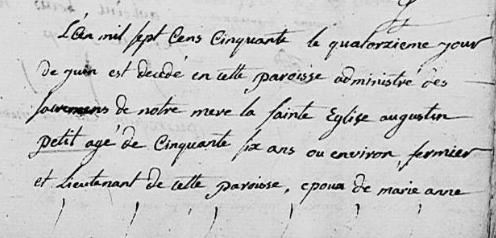 L'an mil sept Cens Cinquante le quatorzieme jour
de juin est decedé en cette paroisse administré des
sacremens de notre mere la sainte Eglise augustin
petit agé de Cinquante six ans ou environ, fermier
et lieutenant de cette paroisse, epoux de marie anne